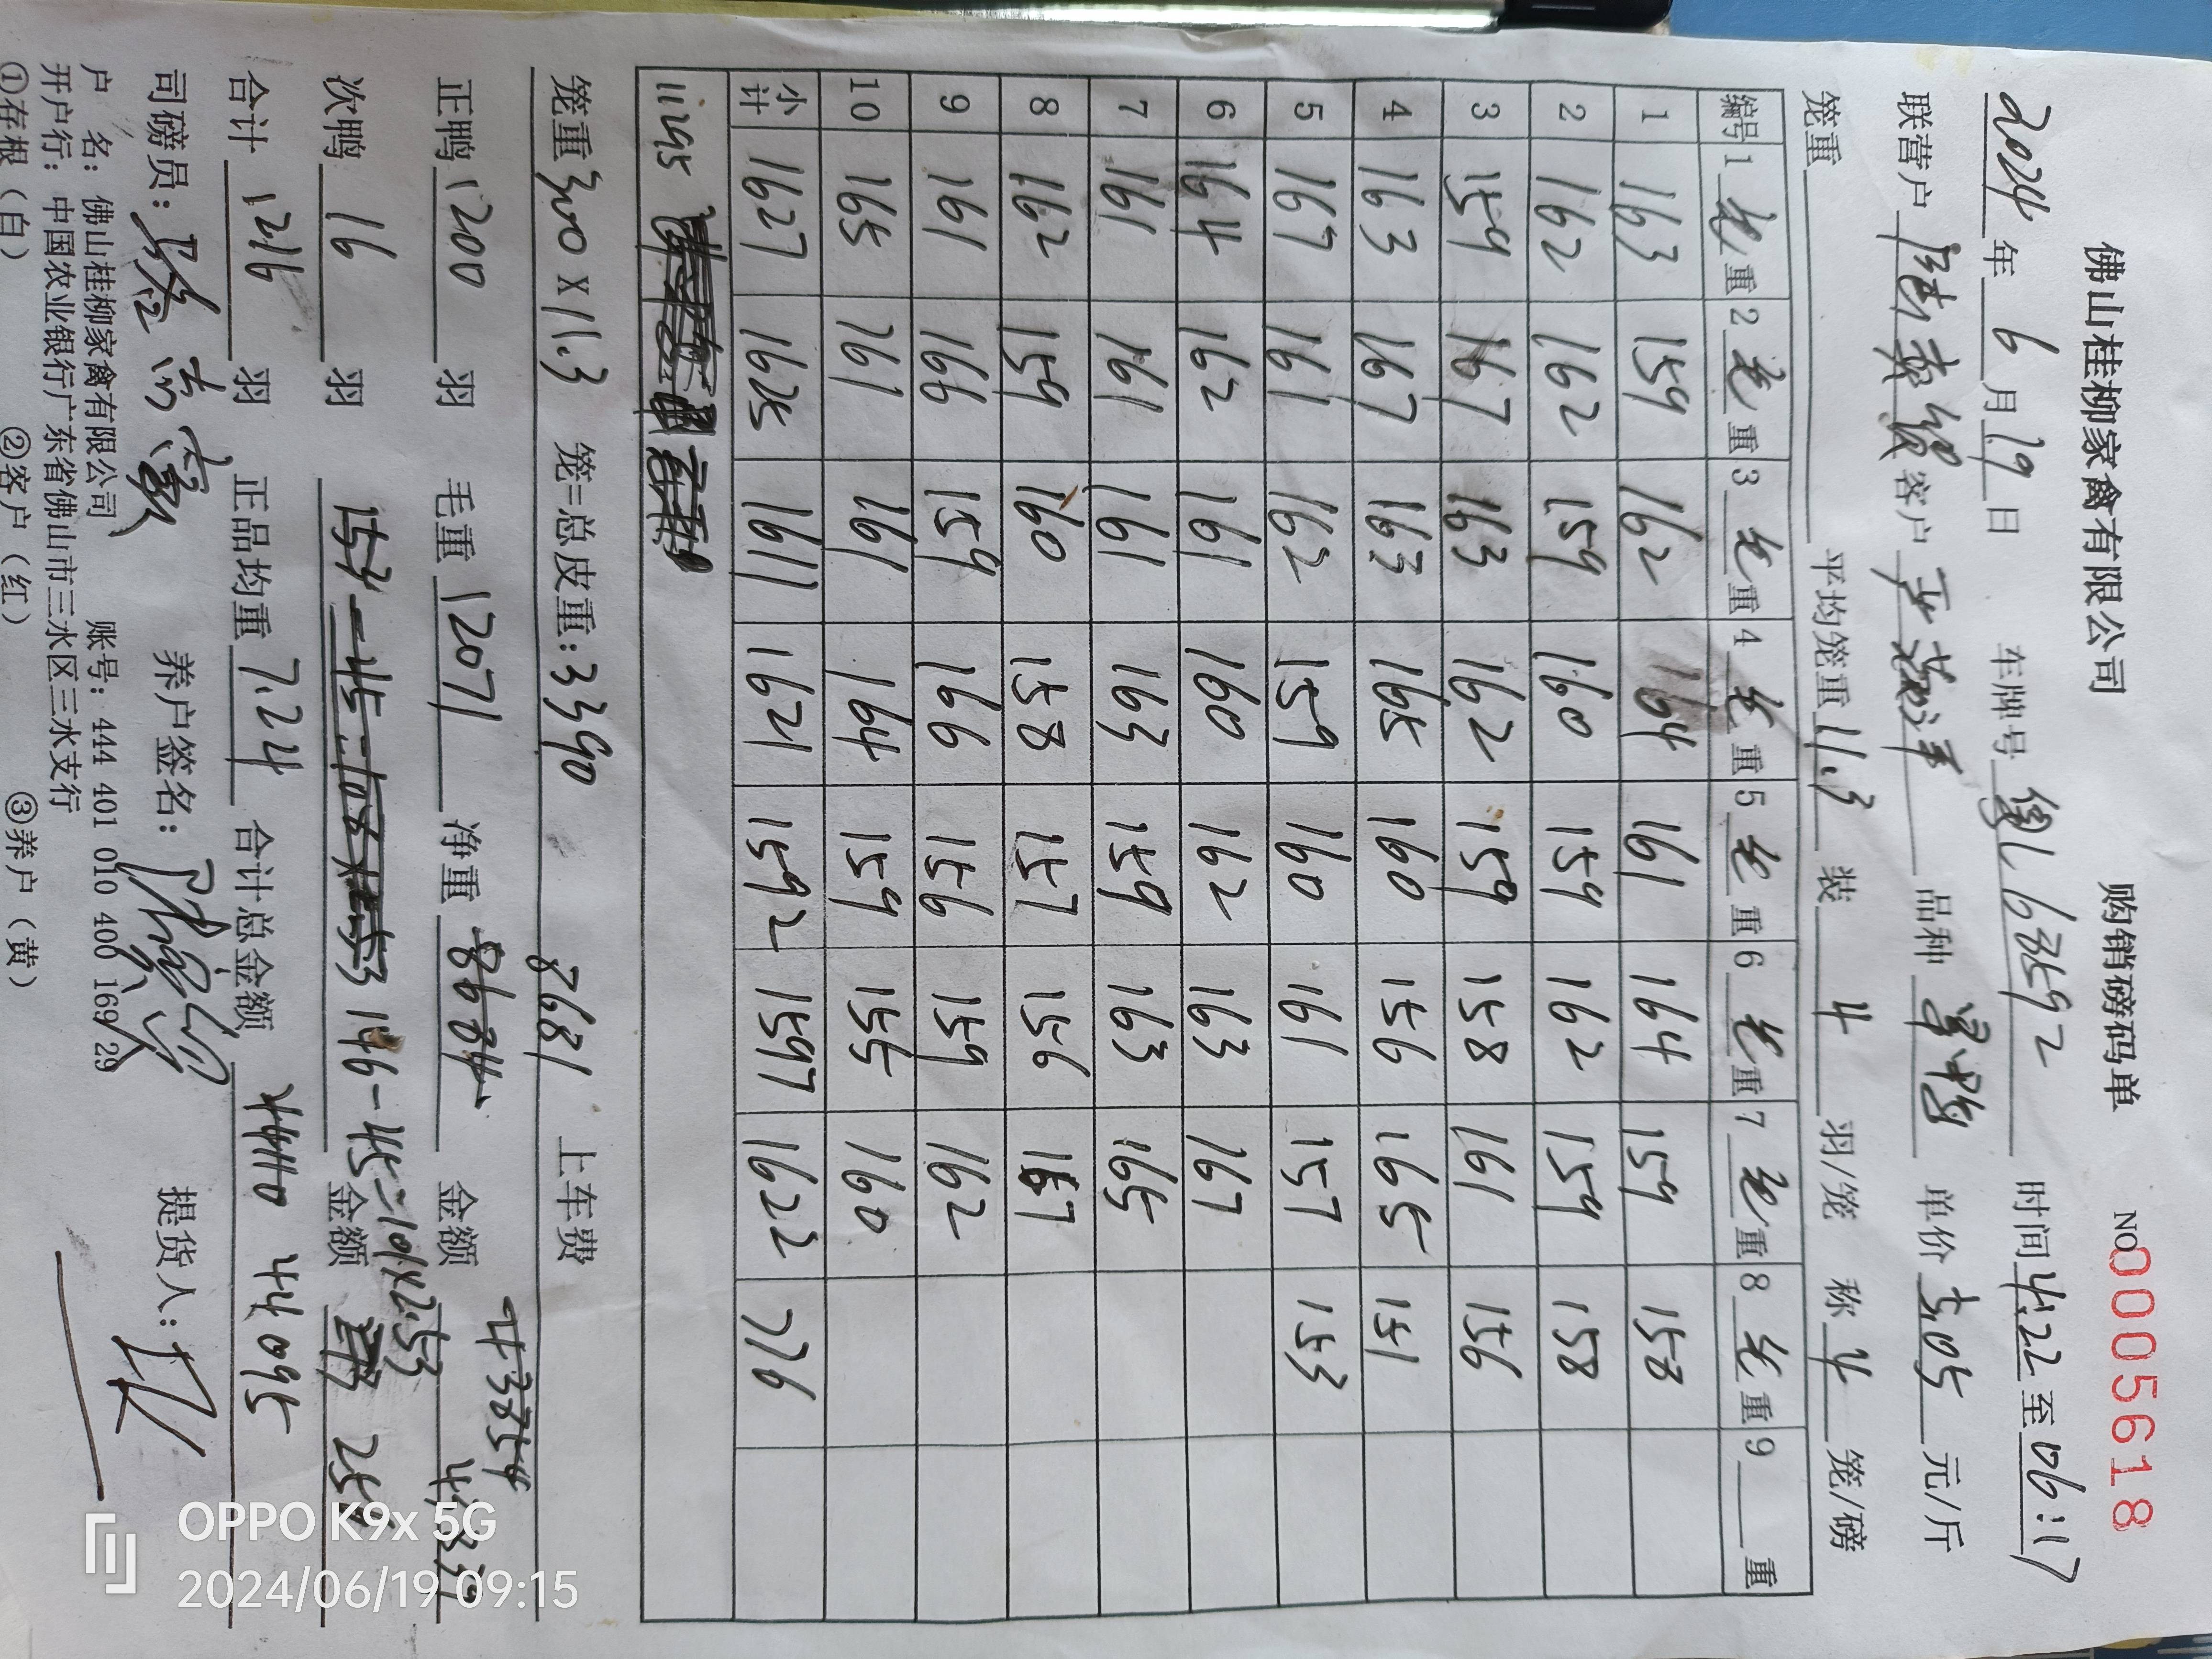 佛山桂柳家禽有限公司 购销磅码单 NO 0005618
2024年6月19日 车牌号 63592 时间 4:22至06:17
联营户 客户 品种 单价5.05元/斤
笼重 平均笼重11.3 装4羽/笼 称4笼/磅
编号 1毛重 2毛重 3毛重 4毛重 5毛重 6毛重 7毛重 8毛重 9 重
1 163 159 162 164 161 164 159 158
2 162 162 159 160 159 162 159 158
3 159 167 163 162 159 158 161 156
4 163 167 163 165 160 156 165 151
5 167 161 162 159 160 161 157 153
6 164 162 161 160 162 163 167
7 161 161 161 163 159 163 165
8 162 159 160 158 157 156 167
9 161 166 159 166 156 159 162
10 165 161 161 164 159 155 160
小计 1627 1625 1611 1621 1592 1597 1622 776
笼重300X11.3 笼=总皮重:3390 8681 上车费
正鸭1200羽 毛重12071 净重 8684 金额 43854 43839
次鸭16羽 146-45=101X2.53 金额
合计1216羽 正品均重7.24 合计总金额 44110 44095
司磅员: 养户签名: 提货人:
户 名: 佛山桂柳家禽有限公司 账号: 444 401 010 400 169/29
开户行: 中国农业银行广东省佛山市三水区三水支行
①存根(白) ②客户(红) ③养户(黄)
OPPO K9x 5G
2024/06/19 09:15